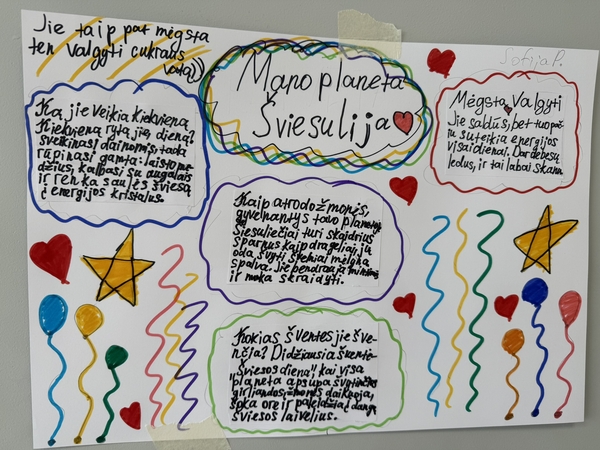 Jie taip pat mėgsta
ten valgyti cukraus
vatą))
Mano planeta
Šviesulija
Sofija P.
Ką jie veikia kiekvieną
dieną?
Kiekvieną rytą jie
sveikinasi dainomis, tada
rūpinasi gamta: laisto
džius, kalbasi su augalais
ir renka saulės šviesą
į energijos kristalus.
Mėgsta Valgyti
Jie saldūs, bet tuo pač
iu suteikia energijos
visai dienai. Dar debesų
ledus, ir tai labai skanu.
Kaip atrodo žmonės,
gyvenantys tavo planetoje
Šiesuliečiai turi skaidrius
sparnus kaip drugeliai, jų
oda švyti švelniai mėlyna
spalva. Jie bendrauja mintimis
ir moka skraidyti.
Kokias šventes jie šve-
nčia? Didžiausia šventė
"Šviesos diena", kai visa
planeta apsupa
girliandos, žmonės dainuoja,
šoka ore ir paleidžia į dangų
šviesos laivelius.